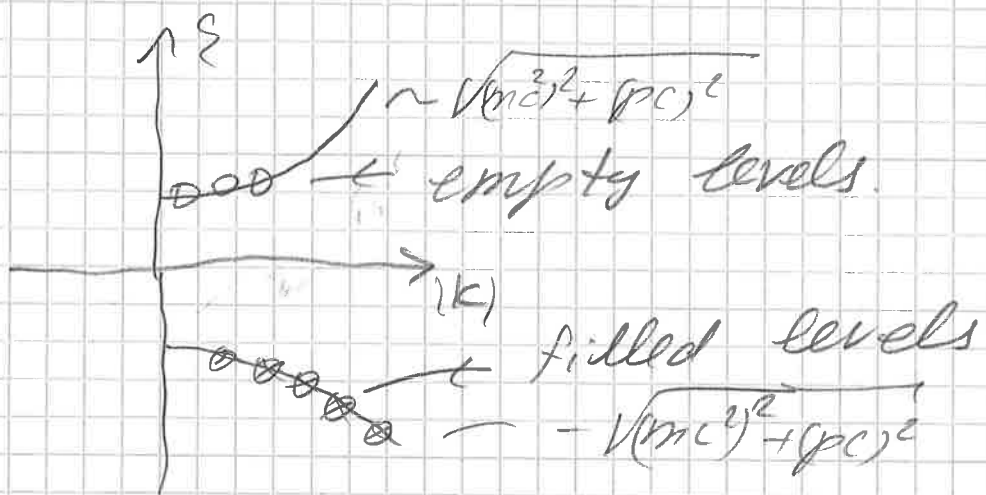 ξ
~ √(mc²)² + (pc)²
← empty levels.
|k|
← filled levels
— - √(mc²)² + (pc)²